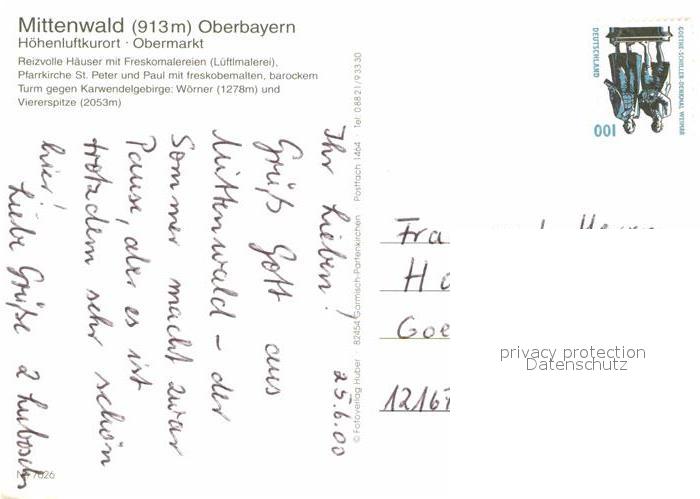 Mittenwald (913m) Oberbayern
Höhenluftkurort · Obermarkt
Reizvolle Häuser mit Freskomalereien (Lüftlmalerei),
Pfarrkirche St. Peter und Paul mit freskobemalten, barockem
Turm gegen Karwendelgebirge: Wörner (1278m) und
Viererspitze (2053m)
Ihr Lieben! 25.6.00
Grüß Gott aus
Mittenwald - der
Sommer macht zwar
Pause, aber es ist
trotzdem sehr schön
hier!
Liebe Grüße 2
© Fotoverlag Huber · 82454 Garmisch-Partenkirchen · Postfach 1464 · Tel. 08821/93330
GOETHE-SCHILLER-DENKMAL WEIMAR
DEUTSCHLAND
100
Fra
Ho
Goe
1216
privacy protection
Datenschutz